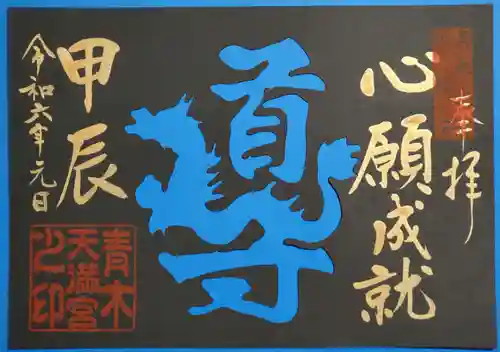 奉拝
心願成就
甲辰
令和六年元日
青木
天満宮
之印